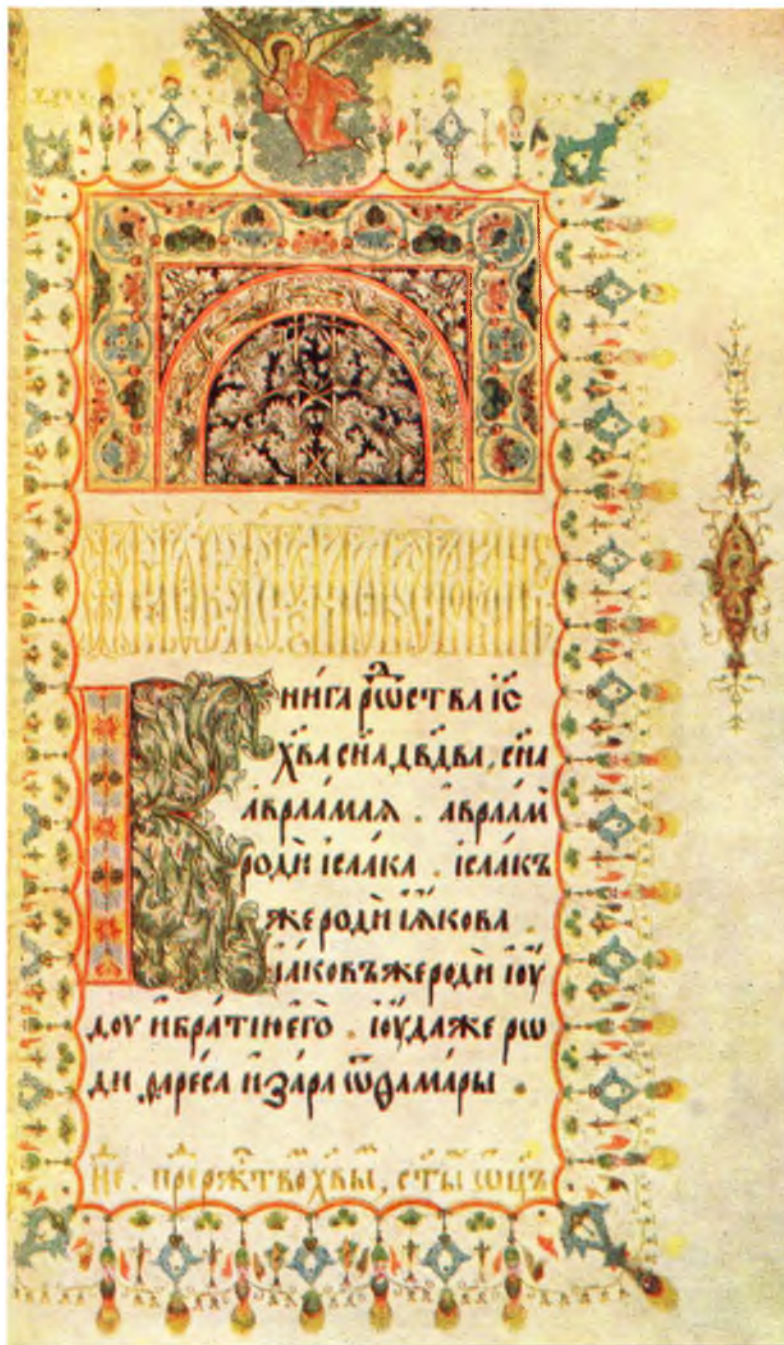 Кни́га рⷣѡ҃ства і҆с
хв҃а сн҃а дв҃два, сн҃а
а҆враа́млѧ . а҆враа́м
родѝ і҆саа́ка . і҆саа́къ
же родѝ і҆ѧ́кова
і҆а́ковъ же родѝ і҆ꙋ́
дꙋ и҆ бра́тїю є҆гѡ̀ . і҆ꙋ́да же рѡ
дѝ фаре́са и҆ за́ра ѿ ѳама́ры .
не . пре рж҇тво хв҃ы, ст҃ы ѡц҃ъ